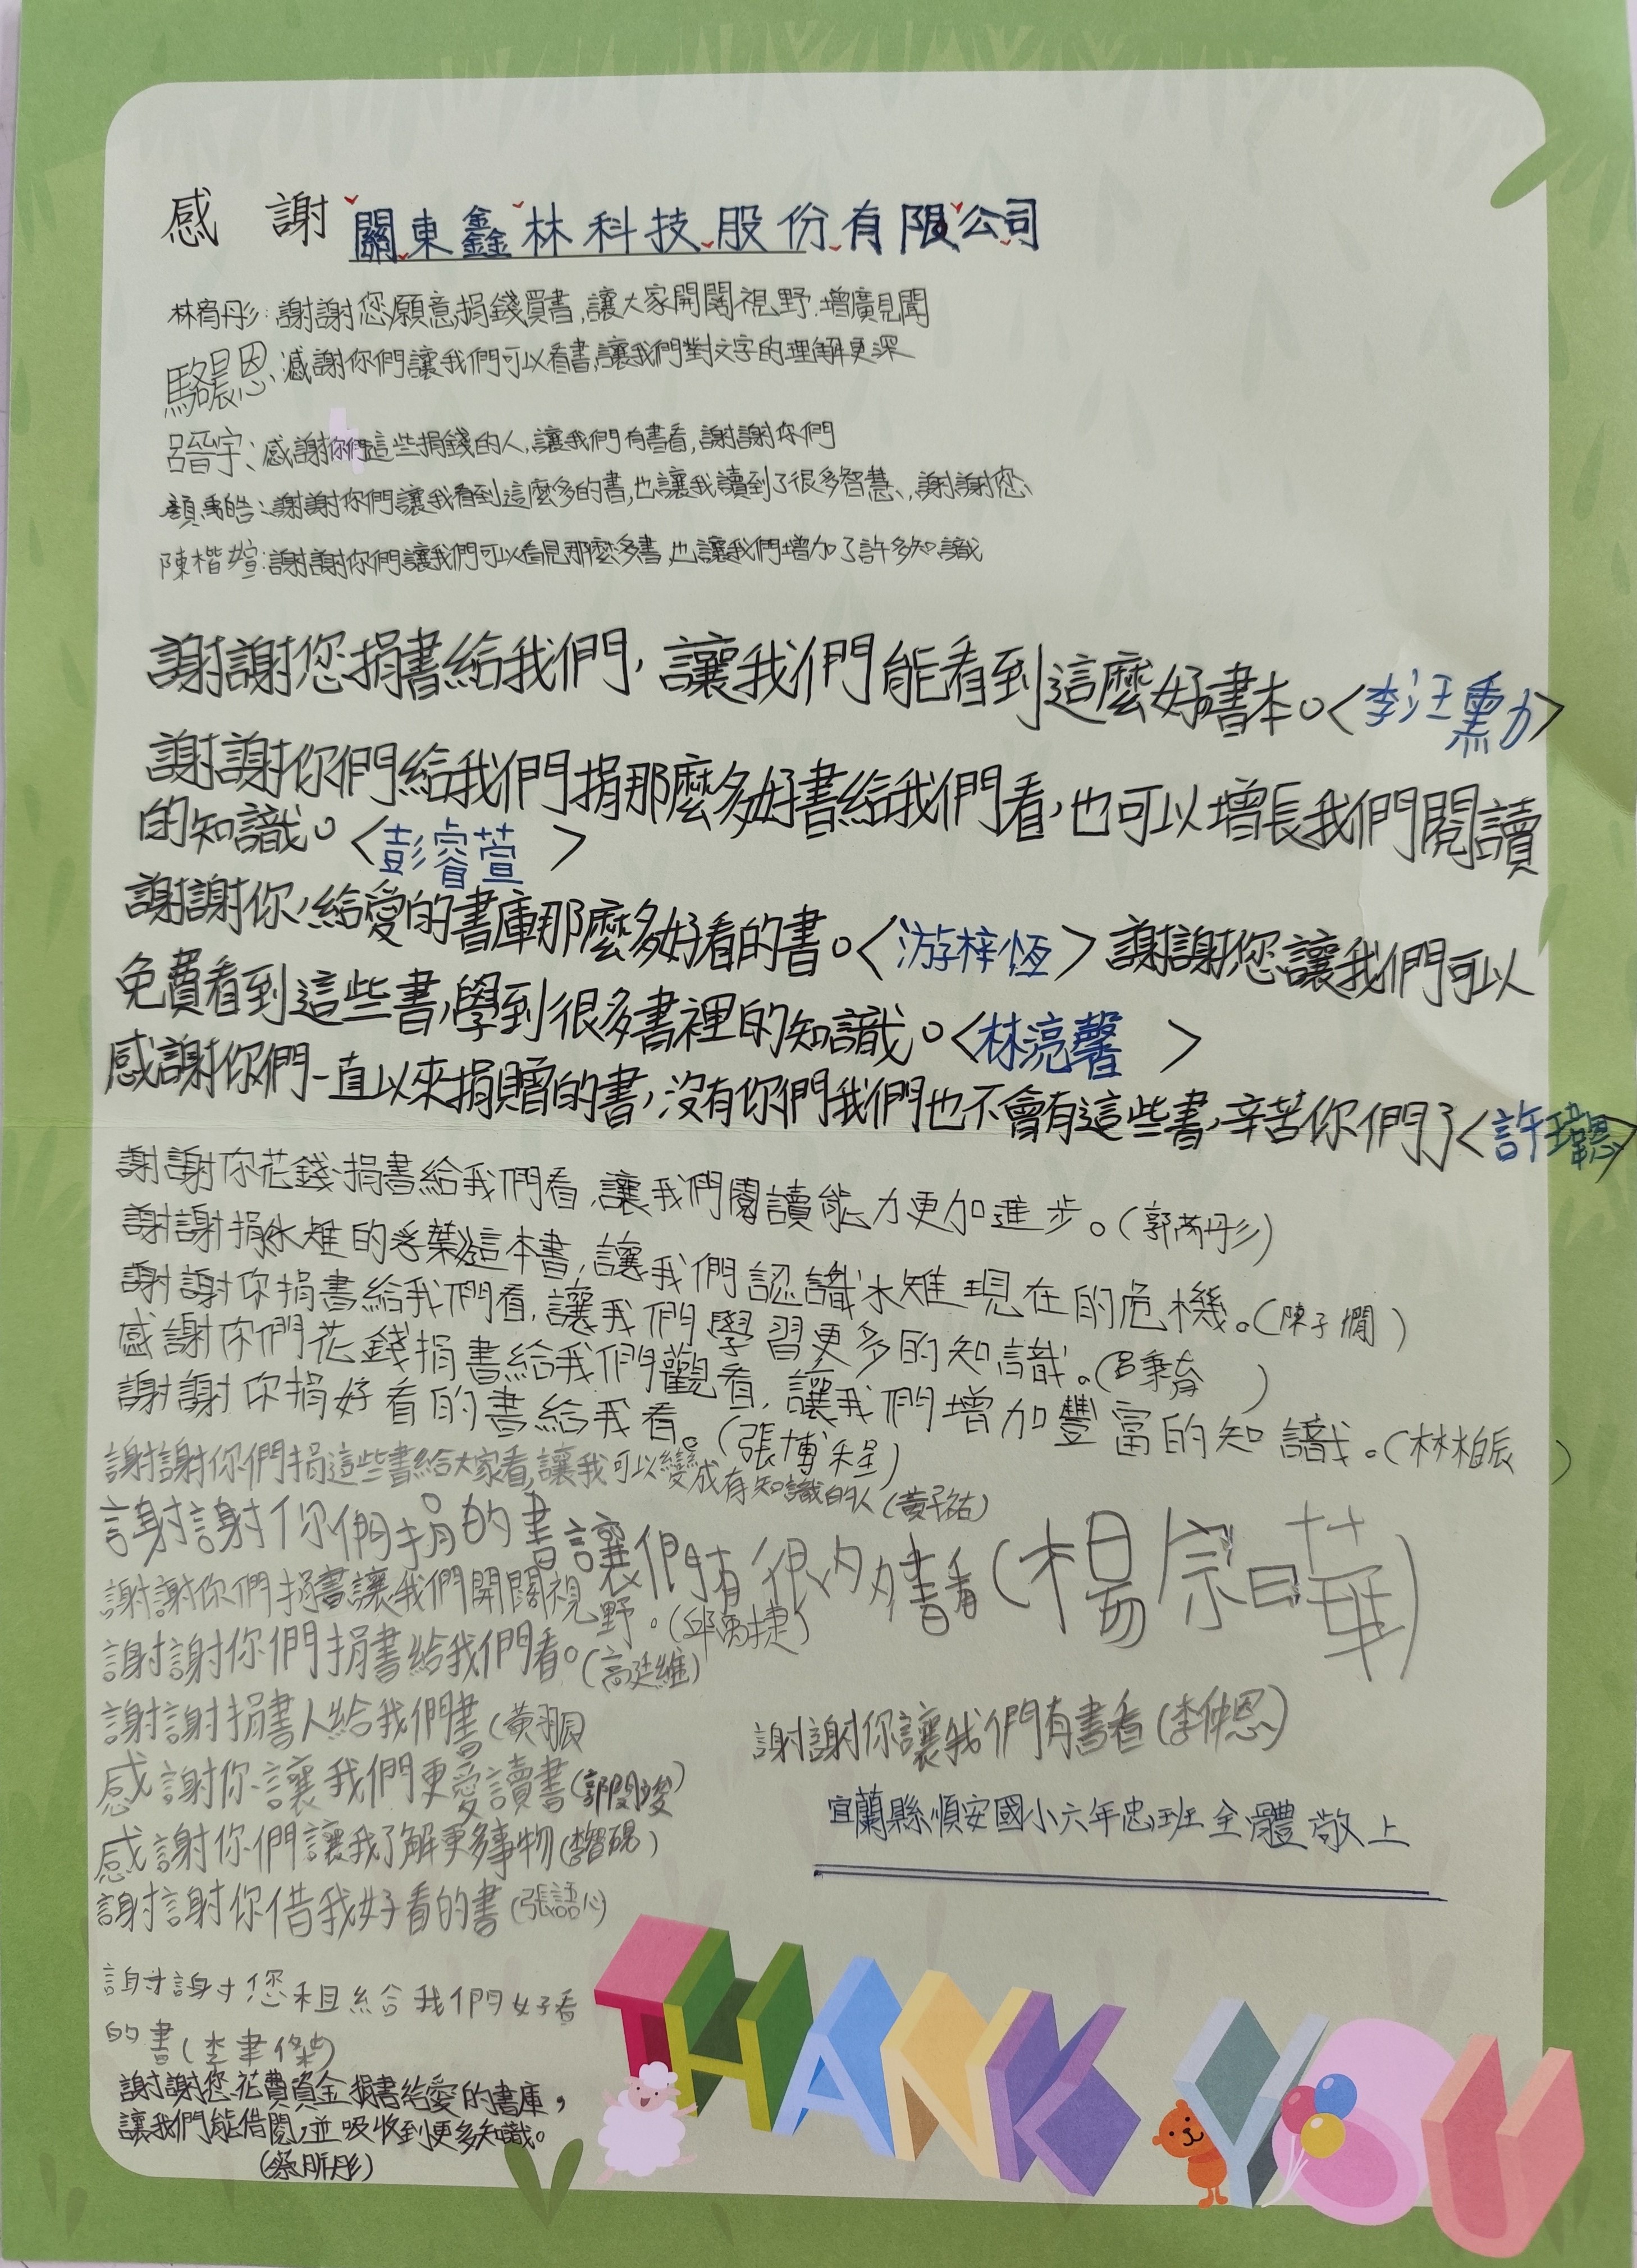 感謝 關東鑫林科技股份有限公司
林宥彤:謝謝您願意捐錢買書,讓大家開闊視野.增廣見聞
駱晨恩、感謝你們讓我們可以看書,讓我們對文字的理解更深
呂晉宇、感謝你們這些捐錢的人,讓我們有書看,謝謝你們
顏禹皓:謝謝你們讓我看到這麼多的書,也讓我讀到了很多智慧、謝謝您、
陳楷媗:謝謝你們讓我們可以看見那麼多書,也讓我們增加了許多知識
謝謝您捐書給我們,讓我們能看到這麼好書本。<李汪勳>
謝謝你們給我們捐那麼多好書給我們看,也可以增長我們閱讀
的知識。<彭睿萱>
謝謝你,給愛的書庫那麼多好看的書。<游梓恆>謝謝您讓我們可以
免費看到這些書,學到很多書裡的知識。<林湸馨>
感謝你們一直以來捐贈的書,沒有你們我們也不會有這些書,辛苦你們了<許瑋恩>
謝謝你花錢捐書給我們看,讓我們閱讀能力更加進步。(郭芮彤)
謝謝捐《水雉的浮葉》這本書,讓我們認識水雉現在的危機。(陳子嫻)
謝謝你捐書給我們看,讓我們學習更多的知識。(呂秉育)
感謝你們花錢捐書給我們觀看,讓我們增加豐富的知識。(林柏辰)
謝謝你捐好看的書給我看。(張博程)
謝謝你們捐這些書給大家看,讓我可以變成有知識的人(黃子祐)
謝謝你們捐的書讓們有很多書看(楊宗曄)
謝謝你們捐書讓我們開闊視野。(邱禹捷)
謝謝你們捐書給我們看。(高廷維)
謝謝捐書人給我們書(黃羽辰)
謝謝你讓我們有書看(李仲恩)
感謝你讓我們更愛讀書(郭閔竣)
宜蘭縣順安國小六年忠班全體敬上
感謝你們讓我了解更多事物(李智硯)
謝謝你借我好看的書(張語心)
謝謝您租給我們好看
的書(李聿傑)
謝謝您花費資金捐書給愛的書庫,
讓我們能借閱,並吸收到更多知識。
(蔡昕彤)
THANK YOU